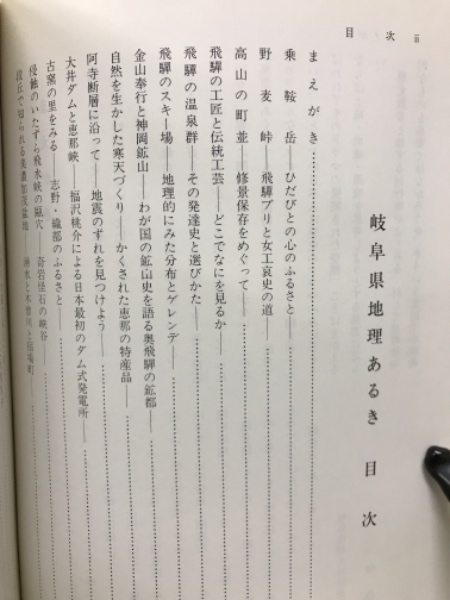 目次 ii
岐阜県地理あるき 目次
まえがき
乗鞍岳――ひだびとの心のふるさと――
野麦峠――飛騨ブリと女工哀史の道――
高山の町並――修景保存をめぐって――
飛騨の工匠と伝統工芸――どこでなにを見るか――
飛騨の温泉群――その発達史と選びかた――
飛騨のスキー場――地理的にみた分布とゲレンデ――
金山奉行と神岡鉱山――わが国の鉱山史を語る奥飛騨の鉱都――
自然を生かした寒天づくり――かくされた恵那の特産品――
阿寺断層に沿って――地震のずれを見つけよう――
大井ダムと恵那峡――福沢桃介による日本最初のダム式発電所――
古窯の里をみる――志野・織部のふるさと――
侵蝕のいたずら飛水峡の甌穴――奇岩怪石の峡谷――
段丘で知られる美濃加茂盆地